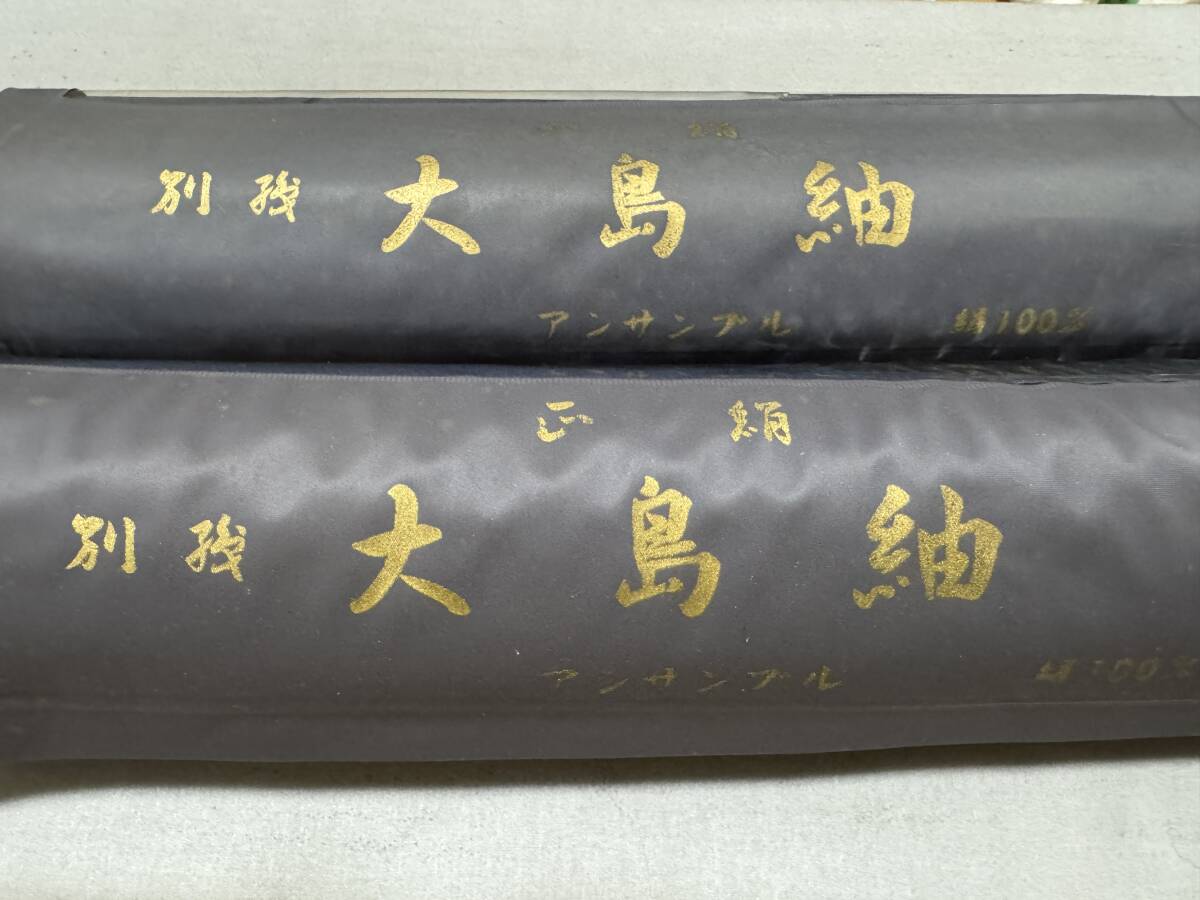 別織 大島紬
アンサンブル 絹100%
正絹
別織 大島紬
アンサンブル 絹100%